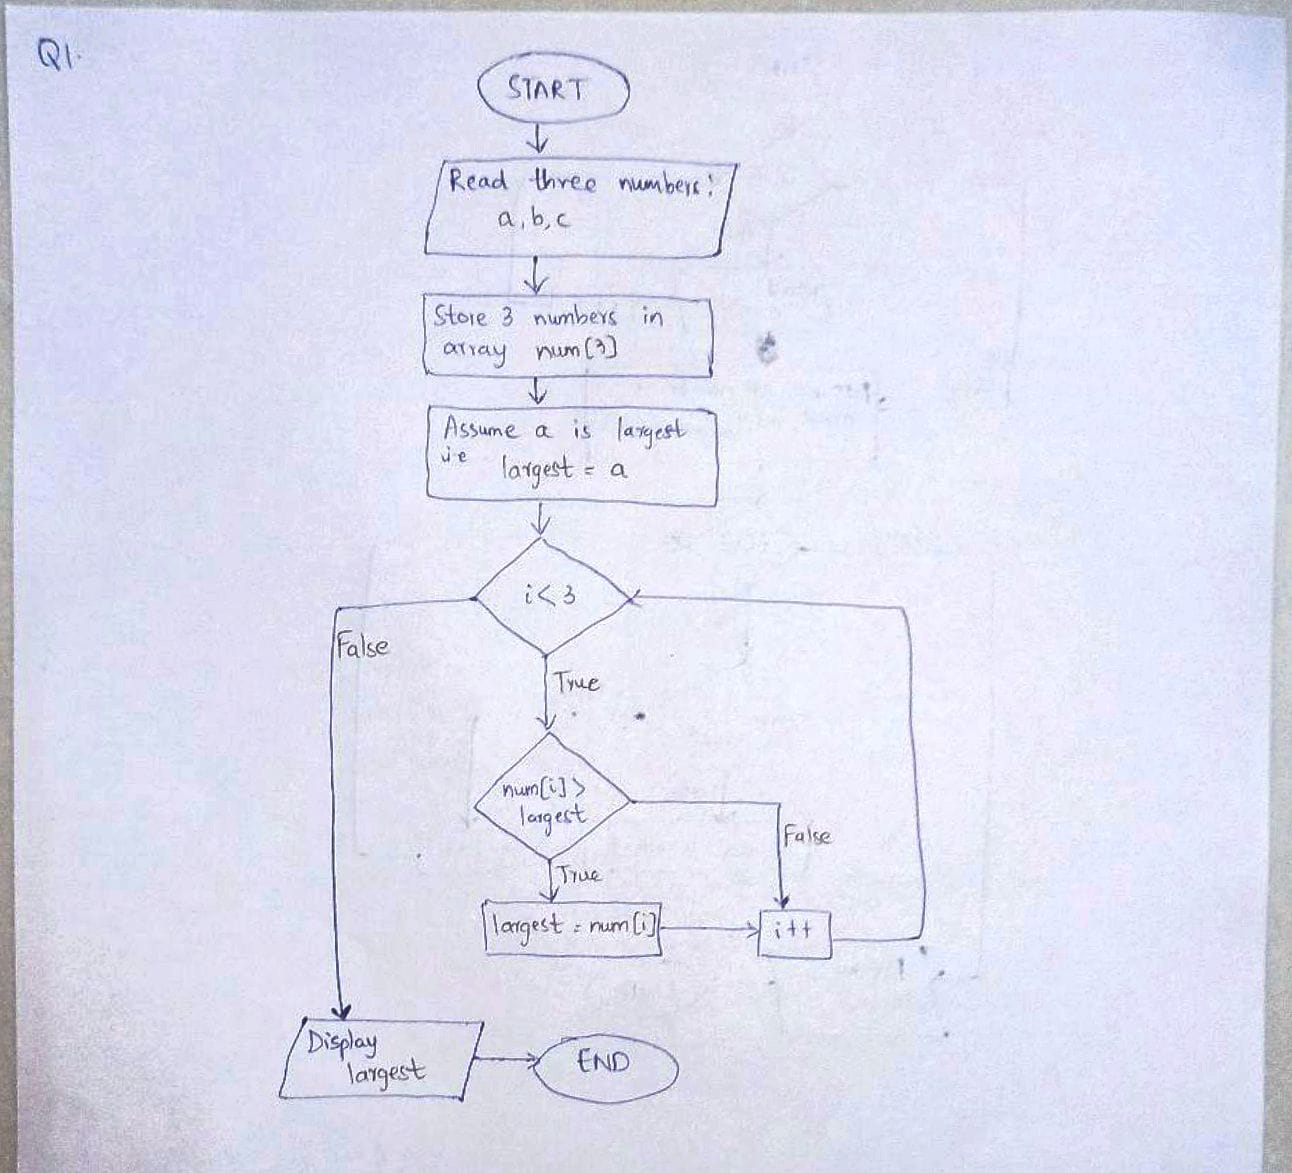 Q1.
START
Read three numbers:
a, b, c
Store 3 numbers in
array num[3]
Assume a is largest
i.e largest = a
i<3
False
True
num[i]>
largest
False
True
largest = num[i]
i++
Display
largest
END